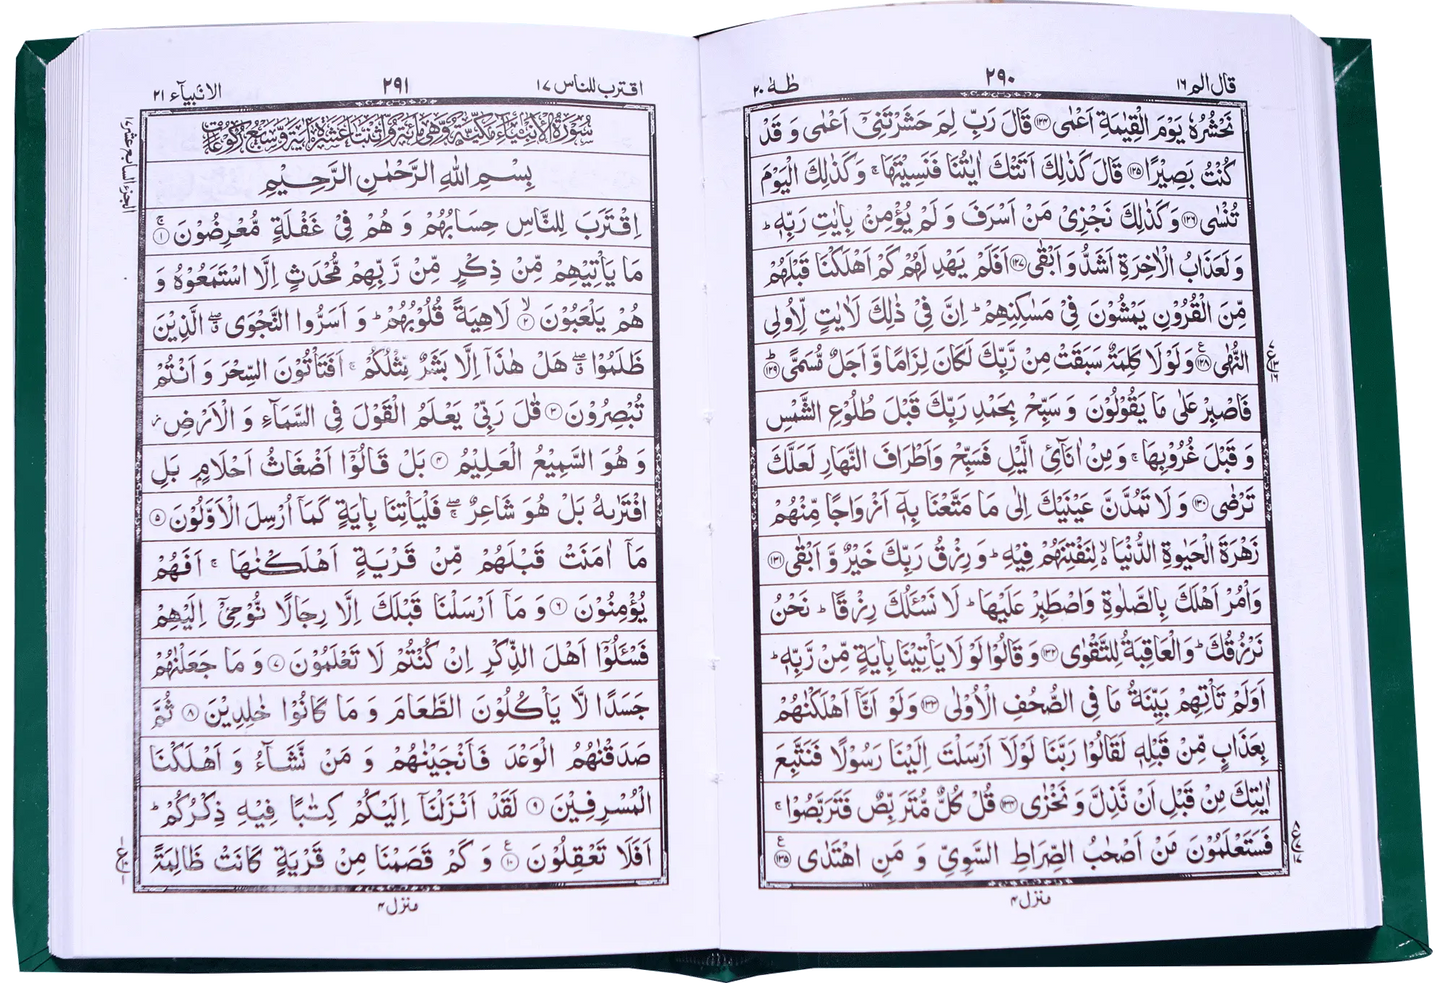 قال الم ١٦
٢٩٠
طٰهٰ ٢٠
نَحْشُرُهٗ يَوْمَ الْقِيٰمَةِ اَعْمٰى ١٢٤ قَالَ رَبِّ لِمَ حَشَرْتَنِىْۤ اَعْمٰى وَ قَدْ
كُنْتُ بَصِيْرًا ١٢٥ قَالَ كَذٰلِكَ اَتَتْكَ اٰيٰتُنَا فَنَسِيْتَهَا ۚ وَكَذٰلِكَ الْيَوْمَ
تُنْسٰى ١٢٦ وَ كَذٰلِكَ نَجْزِىْ مَنْ اَسْرَفَ وَ لَمْ يُؤْمِنْۢ بِاٰيٰتِ رَبِّهٖ ؕ
وَ لَعَذَابُ الْاٰخِرَةِ اَشَدُّ وَ اَبْقٰى ١٢٧ اَفَلَمْ يَهْدِ لَهُمْ كَمْ اَهْلَكْنَا قَبْلَهُمْ
مِّنَ الْقُرُوْنِ يَمْشُوْنَ فِىْ مَسٰكِنِهِمْ ؕ اِنَّ فِىْ ذٰلِكَ لَاٰيٰتٍ لِّاُولِى
النُّهٰى ١٢٨ ع وَ لَوْ لَا كَلِمَةٌ سَبَقَتْ مِنْ رَّبِّكَ لَكَانَ لِزَامًا وَّ اَجَلٌ مُّسَمًّى ؕ ١٢٩
فَاصْبِرْ عَلٰى مَا يَقُوْلُوْنَ وَ سَبِّحْ بِحَمْدِ رَبِّكَ قَبْلَ طُلُوْعِ الشَّمْسِ
وَ قَبْلَ غُرُوْبِهَا ۚ وَ مِنْ اٰنَآئِ الَّيْلِ فَسَبِّحْ وَاَطْرَافَ النَّهَارِ لَعَلَّكَ
تَرْضٰى ١٣٠ وَ لَا تَمُدَّنَّ عَيْنَيْكَ اِلٰى مَا مَتَّعْنَا بِهٖۤ اَزْوَاجًا مِّنْهُمْ
زَهْرَةَ الْحَيٰوةِ الدُّنْيَا ۙ لِنَفْتِنَهُمْ فِيْهِ ؕ وَ رِزْقُ رَبِّكَ خَيْرٌ وَّ اَبْقٰى ١٣١
وَاْمُرْ اَهْلَكَ بِالصَّلٰوةِ وَاصْطَبِرْ عَلَيْهَا ؕ لَا نَسْـَٔلُكَ رِزْقًا ؕ نَحْنُ
نَرْزُقُكَ ؕ وَالْعَاقِبَةُ لِلتَّقْوٰى ١٣٢ وَ قَالُوْا لَوْ لَا يَاْتِيْنَا بِاٰيَةٍ مِّنْ رَّبِّهٖ ؕ
اَوَلَمْ تَاْتِهِمْ بَيِّنَةُ مَا فِى الصُّحُفِ الْاُوْلٰى ١٣٣ وَلَوْ اَنَّاۤ اَهْلَكْنٰهُمْ
بِعَذَابٍ مِّنْ قَبْلِهٖ لَقَالُوْا رَبَّنَا لَوْلَاۤ اَرْسَلْتَ اِلَيْنَا رَسُوْلًا فَنَتَّبِعَ
اٰيٰتِكَ مِنْ قَبْلِ اَنْ نَّذِلَّ وَ نَخْزٰى ١٣٤ قُلْ كُلٌّ مُّتَرَبِّصٌ فَتَرَبَّصُوْا ۚ
فَسَتَعْلَمُوْنَ مَنْ اَصْحٰبُ الصِّرَاطِ السَّوِىِّ وَ مَنِ اهْتَدٰى ١٣٥ ع
منزل ٤
اقترب للناس ١٧
٢٩١
الانبيآء ٢١
الجزء السابع عشر ١٧
سُوْرَةُ الْاَنْبِيَآءِ مَكِّيَّةٌ وَّهِىَ مِائَةٌ وَّاثْنَتَا عَشْرَةَ اٰيَةً وَّسَبْعُ رُكُوْعَاتٍ
بِسْمِ اللّٰهِ الرَّحْمٰنِ الرَّحِيْمِ
اِقْتَرَبَ لِلنَّاسِ حِسَابُهُمْ وَ هُمْ فِىْ غَفْلَةٍ مُّعْرِضُوْنَ ۚ ١
مَا يَاْتِيْهِمْ مِّنْ ذِكْرٍ مِّنْ رَّبِّهِمْ مُّحْدَثٍ اِلَّا اسْتَمَعُوْهُ وَ
هُمْ يَلْعَبُوْنَ ۙ ٢ لَاهِيَةً قُلُوْبُهُمْ ؕ وَ اَسَرُّوا النَّجْوَى ۖۗ الَّذِيْنَ
ظَلَمُوْا ۖۗ هَلْ هٰذَاۤ اِلَّا بَشَرٌ مِّثْلُكُمْ ۚ اَفَتَاْتُوْنَ السِّحْرَ وَ اَنْتُمْ
تُبْصِرُوْنَ ٣ قٰلَ رَبِّىْ يَعْلَمُ الْقَوْلَ فِى السَّمَآءِ وَ الْاَرْضِ ز
وَ هُوَ السَّمِيْعُ الْعَلِيْمُ ٤ بَلْ قَالُوْۤا اَضْغَاثُ اَحْلَامٍۭ بَلِ
افْتَرٰىهُ بَلْ هُوَ شَاعِرٌ ۖۚ فَلْيَاْتِنَا بِاٰيَةٍ كَمَاۤ اُرْسِلَ الْاَوَّلُوْنَ ٥
مَاۤ اٰمَنَتْ قَبْلَهُمْ مِّنْ قَرْيَةٍ اَهْلَكْنٰهَا ۚ اَفَهُمْ
يُؤْمِنُوْنَ ٦ وَ مَاۤ اَرْسَلْنَا قَبْلَكَ اِلَّا رِجَالًا نُّوْحِىْۤ اِلَيْهِمْ
فَسْـَٔلُوْۤا اَهْلَ الذِّكْرِ اِنْ كُنْتُمْ لَا تَعْلَمُوْنَ ٧ وَ مَا جَعَلْنٰهُمْ
جَسَدًا لَّا يَاْكُلُوْنَ الطَّعَامَ وَ مَا كَانُوْا خٰلِدِيْنَ ٨ ثُمَّ
صَدَقْنٰهُمُ الْوَعْدَ فَاَنْجَيْنٰهُمْ وَ مَنْ نَّشَآءُ وَ اَهْلَكْنَا
الْمُسْرِفِيْنَ ٩ لَقَدْ اَنْزَلْنَاۤ اِلَيْكُمْ كِتٰبًا فِيْهِ ذِكْرُكُمْ ؕ
اَفَلَا تَعْقِلُوْنَ ١٠ ع وَ كَمْ قَصَمْنَا مِنْ قَرْيَةٍ كَانَتْ ظَالِمَةً
منزل ٤